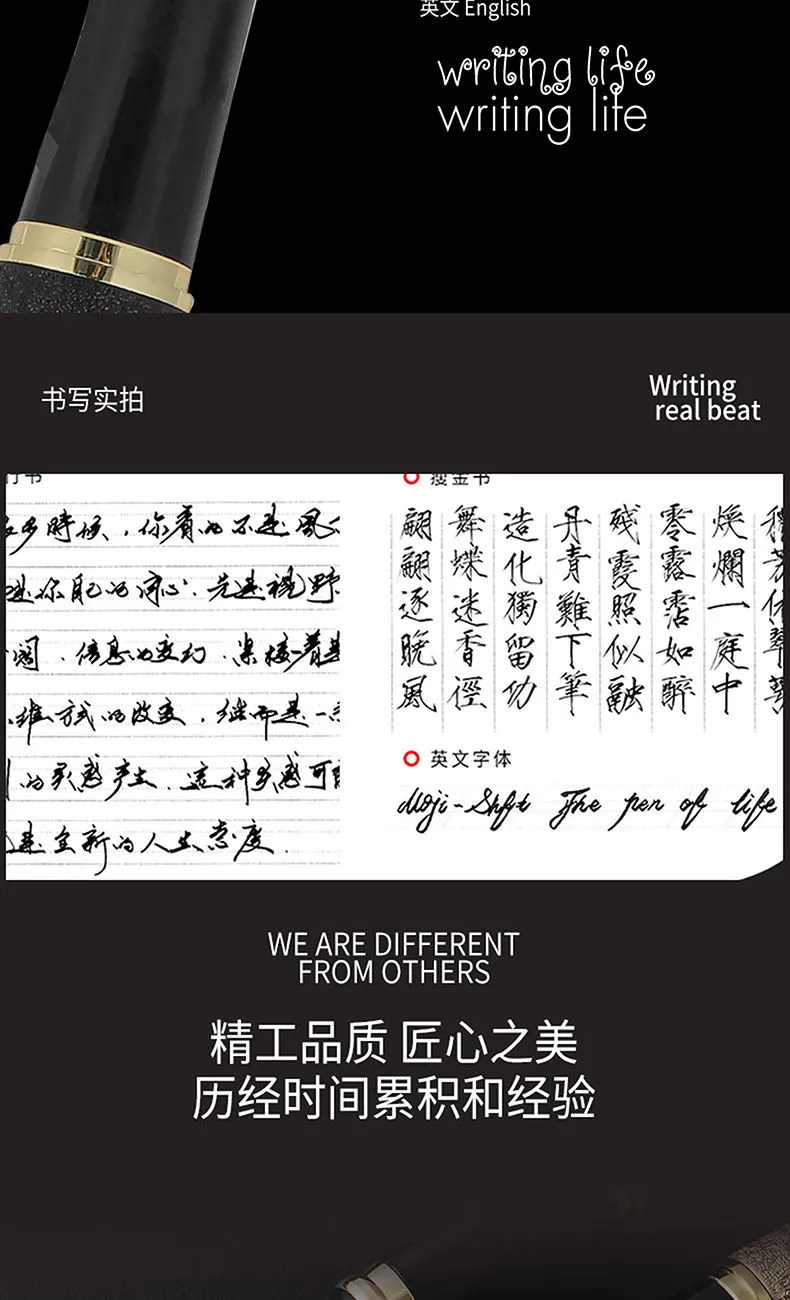 英文 English
writing life
writing life
书写实拍
Writing
real beat
行书
时候，你看的不是风
进你自己的内心．先是视野
阔．信息的变幻．紧接着是
维方式的改变．继而是一
的灵感产生．这种灵感可能
是全新的人生态度．
瘦金书
翩翩逐晚风
舞蝶迷香径
造化独留功
丹青难下笔
残霞照似融
零露沾如醉
焕烂一庭中
秾芳依翠萼
英文字体
Moji-Shft The pen of life
WE ARE DIFFERENT
FROM OTHERS
精工品质 匠心之美
历经时间累积和经验